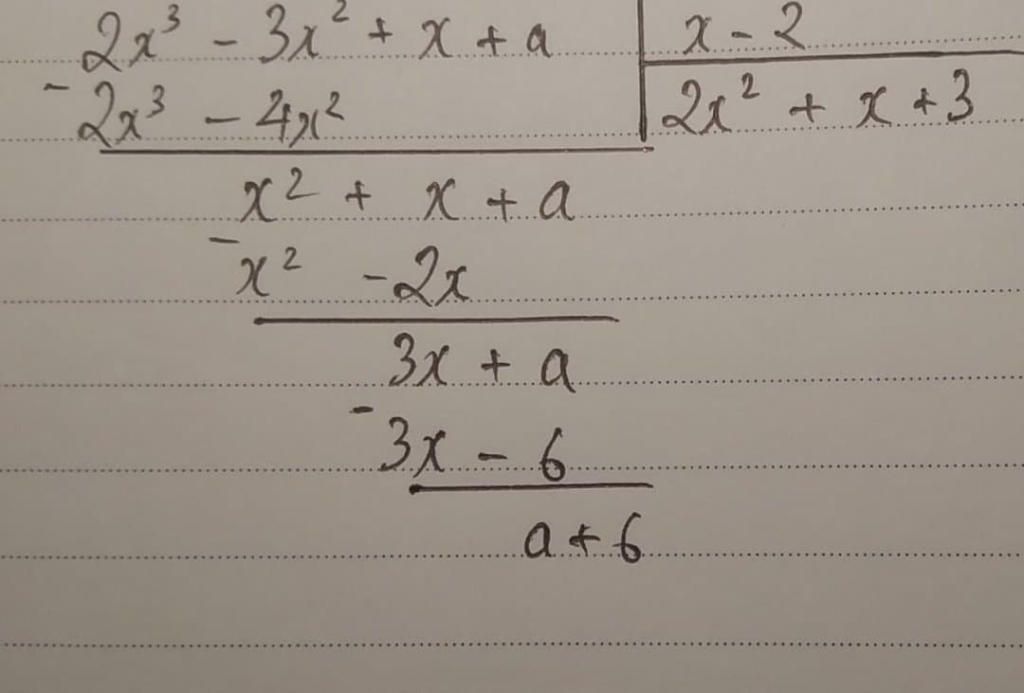 2x³ - 3x² + x + a | x - 2
- 2x³ - 4x² | 2x² + x + 3
x² + x + a
- x² - 2x
3x + a
- 3x - 6
a + 6